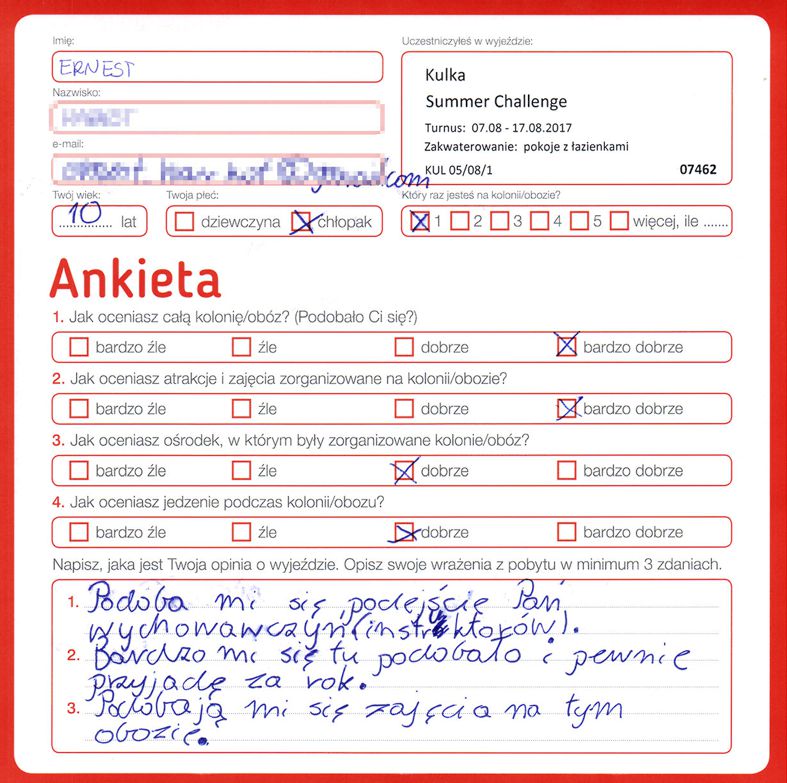 Imię:
ERNEST
Nazwisko:
e-mail:
Uczestniczyłeś w wyjeździe:
Kulka
Summer Challenge
Turnus: 07.08 - 17.08.2017
Zakwaterowanie: pokoje z łazienkami
KUL 05/08/1 07462
Twój wiek:
10 lat
Twoja płeć:
dziewczyna chłopak
Który raz jesteś na kolonii/obozie?
1 2 3 4 5 więcej, ile .......
Ankieta
1. Jak oceniasz całą kolonię/obóz? (Podobało Ci się?)
bardzo źle źle dobrze bardzo dobrze
2. Jak oceniasz atrakcje i zajęcia zorganizowane na kolonii/obozie?
bardzo źle źle dobrze bardzo dobrze
3. Jak oceniasz ośrodek, w którym były zorganizowane kolonie/obóz?
bardzo źle źle dobrze bardzo dobrze
4. Jak oceniasz jedzenie podczas kolonii/obozu?
bardzo źle źle dobrze bardzo dobrze
Napisz, jaka jest Twoja opinia o wyjeździe. Opisz swoje wrażenia z pobytu w minimum 3 zdaniach.
1. Podoba mi się podejście Pań
wychowawczyń (instruktorów).
2. Bardzo mi się tu podobało i pewnie
przyjadę za rok.
3. Podobają mi się zajęcia na tym
obozie.